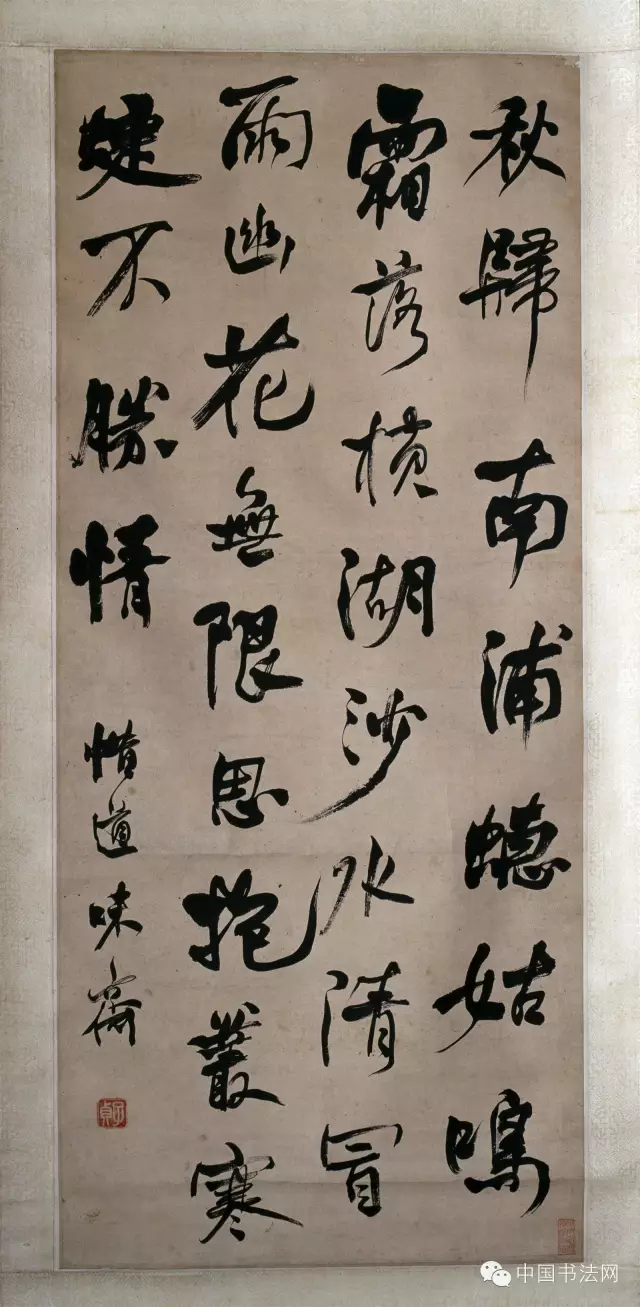 秋歸南浦蟪姑鳴
霜落橫湖沙水清冒
雨幽花無限思抱叢寒
蜨不勝情
惜道味齋
子貞
中国书法网